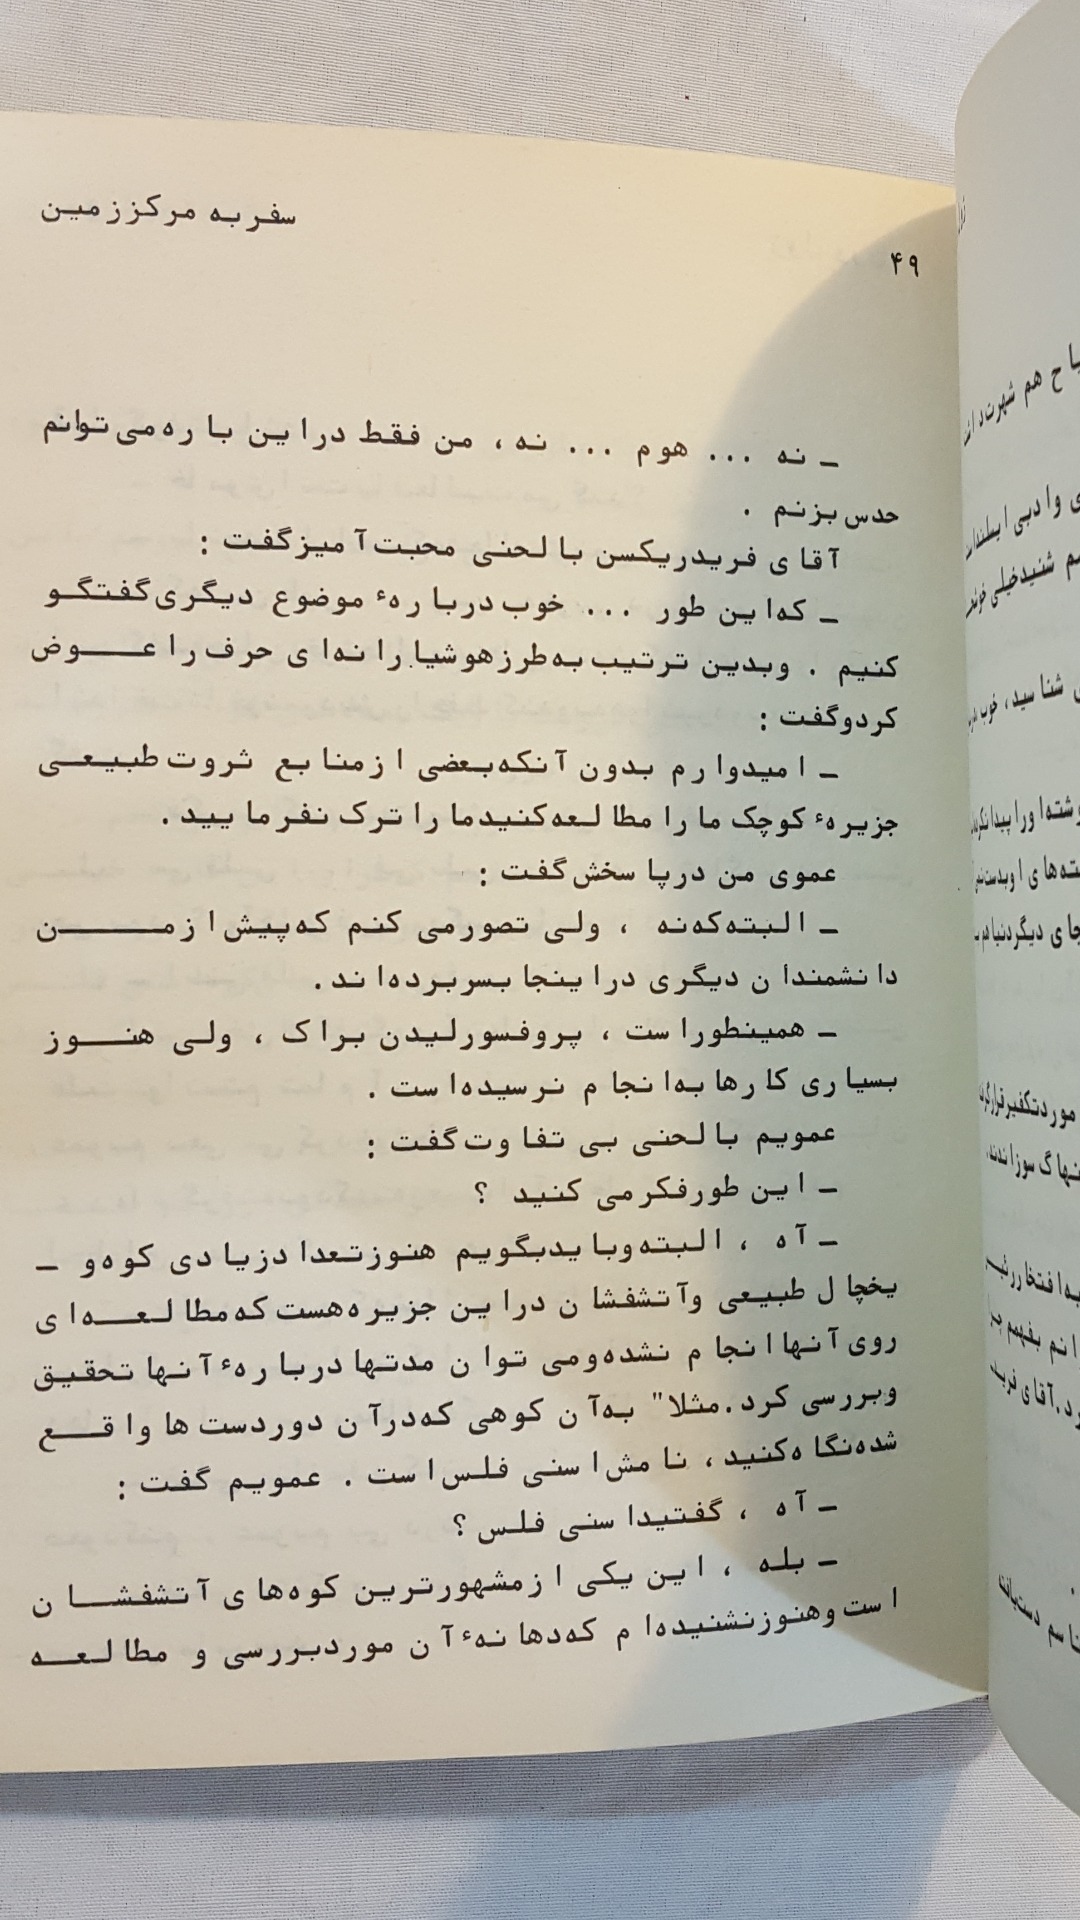 سفر به مرکز زمین
۴۹
ـ نه ... هوم ... نه، من فقط در این باره می توانم
حدس بزنم .
آقای فریدریکسن با لحنی محبت آمیز گفت :
ـ که این طور ... خوب درباره ٔ موضوع دیگری گفتگو
کنیم . و بدین ترتیب به طرز هوشیارانه ای حرف را عـــوض
کرد و گفت :
ـ امیدوارم بدون آنکه بعضی از منابع ثروت طبیعـی
جزیره ٔ کوچک ما را مطالعه کنید ما را ترک نفرمایید .
عموی من در پاسخش گفت :
ـ البته که نه ، ولی تصور می کنم که پیش از مـــن
دانشمندان دیگری در اینجا بسر برده اند .
ـ همینطور است ، پروفسور لیدن براک ، ولی هنـــوز
بسیاری کارها به انجام نرسیده است .
عمویم با لحنی بی تفاوت گفت :
ـ این طور فکر می کنید ؟
ـ آه ، البته و باید بگویم هنوز تعداد زیادی کوه و ـ
یخچال طبیعی و آتشفشان در این جزیره هست که مطالعـــه ای
روی آنها انجام نشده و می توان مدتها درباره ٔ آنها تحقیق
و بررسی کرد . مثلا" به آن کوهی که در آن دوردست ها واقـــع
شده نگاه کنید ، نامش اسنی فلس است . عمویم گفت :
ـ آه ، گفتید اسنی فلس ؟
ـ بله ، این یکی از مشهورترین کوه های آتشفشـــان
است و هنوز نشنیده ام که دهانه ٔ آن مورد بررسی و مطالعـــه